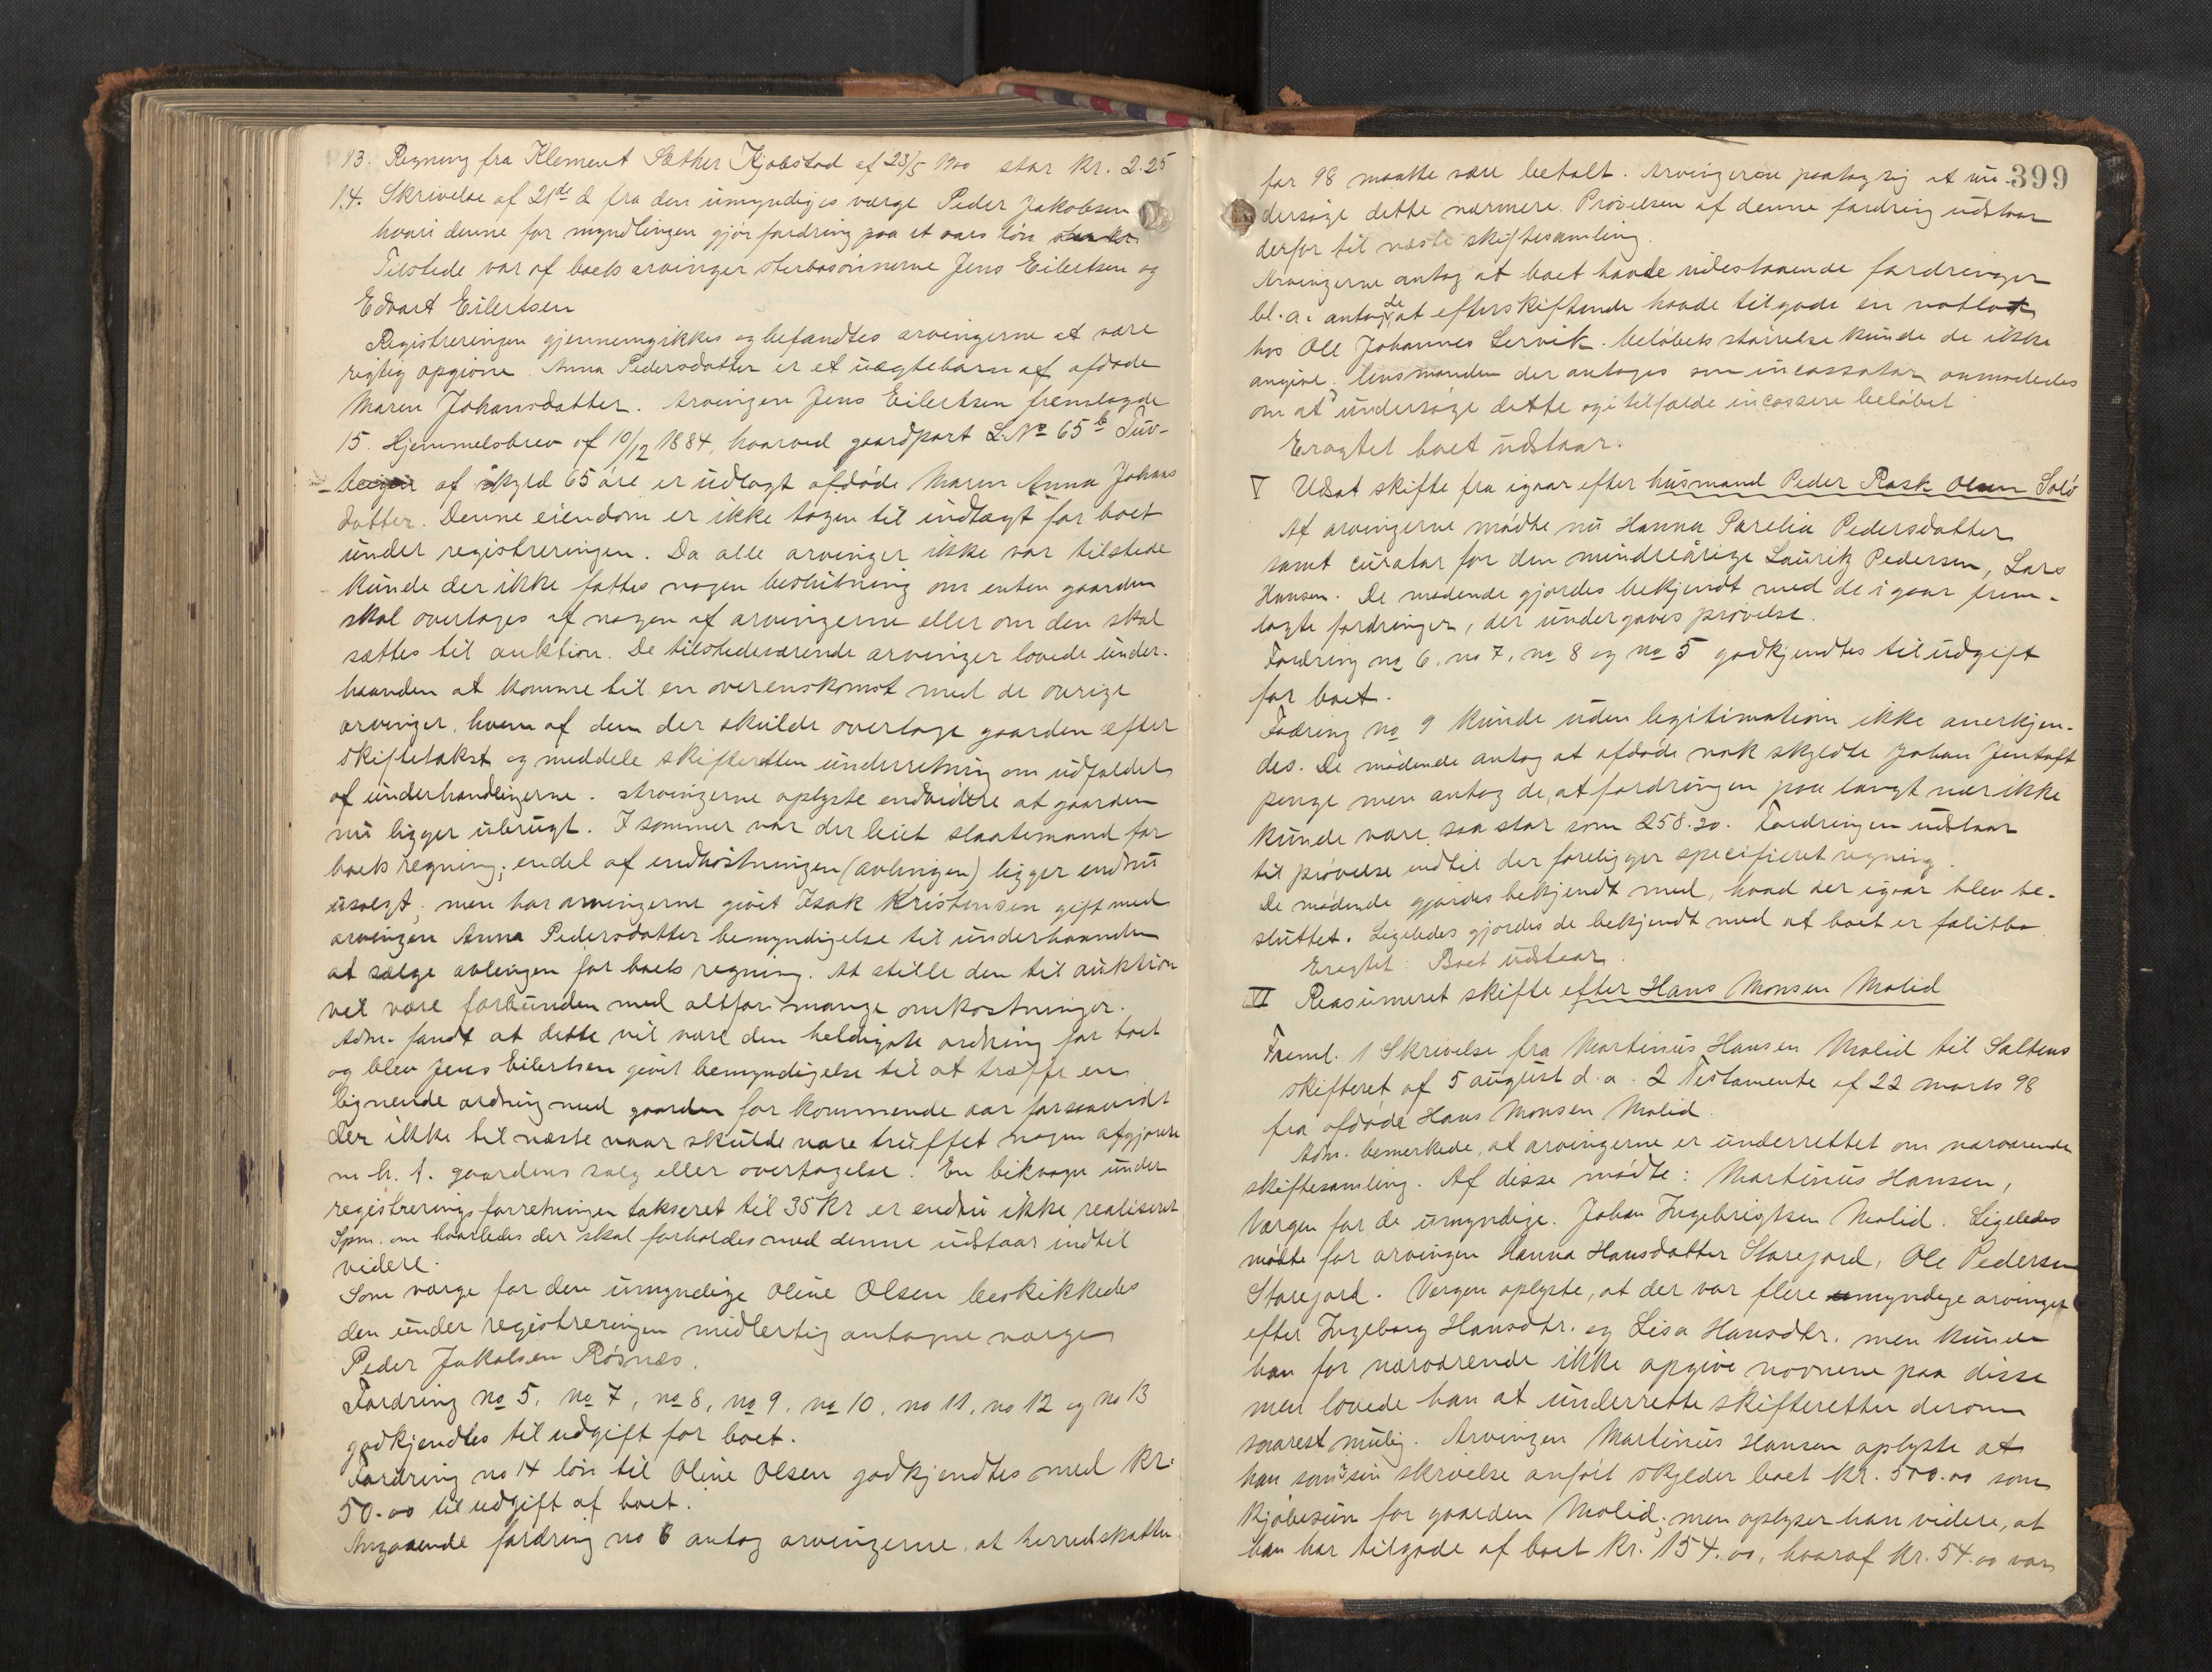 13. Regning fra Klement Sæther Kjobstad af 23/5 1900 stor kr. 2.25
14. Skrivelse af 21de d fra den umyndiges værge Peder Jakobsen
hvori denne for myndlingen gjør fordring paa et aars løn
Tilstede var af boets arvinger sterbosønnerne Jens Eilertsen og
Edvart Eilertsen
Registreringen gjennemgikkes og befandtes arvingerne at være
rigtig opgivne. Anna Pedersdatter er et uægtebarn af afdøde
Maren Johansdatter. Arvingen Jens Eilertsen fremlagde
15. Hjemmelsbrev af 10/12 1884, hvorved gaardpart L.No 65b Tuv-
teigen af skyld 65 øre er udlagt afdøde Maren Anna Johans
datter. Denne eiendom er ikke tagen til indtægt for boet
under registreringen. Da alle arvinger ikke var tilstede
kunde der ikke fattes nogen beslutning om enten gaarden
skal overtages af nogen af arvingerne eller om den skal
sættes til auktion. De tilstedeværende arvinger lovede under-
haanden at komme til en overenskomst med de øvrige
arvinger, hvem af dem der skulde overtage gaarden efter
skiftetakst og meddele skifteretten underretning om udfaldet
af underhandlingerne. Arvingerne oplyste endvidere at gaarden
nu ligger ubrugt. I sommer var der leiet slaatemand for
boets regning; endel af indhøstningen (avlingen) ligger endnu
usolgt; men har arvingerne givet Isak Kristensen gift med
arvingen Anna Pedersdatter bemyndigelse til underhaanden
at sælge avlingen for boets regning. At stille den til auktion
vil være forbunden med altfor mange omkostninger.
Adm. fandt at dette vil være den heldigste ordning for boet
og blev Jens Eilertsen givet bemyndigelse til at træffe en
lignende ordning med gaarden for kommende aar forsaavidt
der ikke til næste vaar skulde være truffet nogen afgjørelse
m. h. t. gaardens salg eller overtagelse. En bikvogn under
registreringsforretningen takseret til 35 kr er endnu ikke realiseret
Spm. om hvorledes der skal forholdes med denne udstaar indtil
videre.
Som værge for den umyndige Oline Olsen beskikkedes
den under registreringen midlertig antagne værge
Peder Jakobsen Røsnæs.
Fordring no 5, no 7, no 8, no 9, no 10, no 11, no 12 og no 13
godkjendtes til udgift for boet.
Fordring no 14 løn til Oline Olsen godkjendtes med kr.
50.00 til udgift af boet.
Angaaende fordring no 6 antog arvingerne, at herredskatten
399
for 98 maatte være betalt. Arvingerne paatog sig at un-
dersøge dette nærmere. Prøvelsen af denne fordring udstaar
derfor til næste skiftesamling.
Arvingerne antog at boet havde udestaaende fordringer
bl. a. antog de at efterskiftende havde tilgode en notlot
hos Ole Johannes Lervik. beløbets størrelse kunde de ikke
angive. lensmanden der antoges som incassator anmodedes
om at undersøge dette og i tilfælde incassere beløbet
Eragtet boet udstaar.
V Udsat skifte fra igaar efter husmand Peder Rask Olsen Solø
Af arvingerne mødte nu Hanna Parelia Pedersdatter
samt curator for den mindreårige Lauritz Pedersen, Lars
Hansen. De mødende gjordes bekjendt med de i gaar frem-
lagte fordringer, der undergaves prøvelse.
Fordring no 6, no 7, no 8 og no 5 godkjendtes til udgift
for boet.
Fodring no 9 kunde uden legitimation ikke anerkjen-
des. De mødende antog at afdøde nok skyldte Johan Jentoft
penge men antog de, at fordringen paa langt nær ikke
kunde være saa stor som 258.20. Fordringen udstaar
til prøvelse indtil der foreligger specificeret regning.
De mødende gjordes bekjendt med, hvad der igaar blev be-
sluttet. Ligeledes gjordes de bekjendt med at boet er fallitbo
Eragtet: Boet udstaar.
VI Reasumeret skifte efter Hans Monsen Molid
Freml. 1 Skrivelse fra Martinus Hansen Molid til Saltens
skifteret af 5 august d. a. 2 Testamente af 22 marts 98
fra afdøde Hans Monsen Molid.
Adm. bemerkede, at arvingerne er underrettet om nærværende
skiftesamling. Af disse mødte: Martinus Hansen,
Værgen for de umyndige. Johan Ingebrigtsen Molid. Ligeledes
mødte for arvingen Hanna Hansdatter Storejord, Ole Pedersen
Storejord. Vergen oplyste, at der var flere umyndige arvinger
efter Ingeborg Hansdtr. og Lisa Hansdtr. men kunde
han for nærværende ikke opgive navnene paa disse
men lovede han at underrette skifteretten derom
snarest mulig. Arvingen Martinus Hansen oplyste at
han som i sin skrivelse anført skylder boet kr. 500.00 som
kjøbesum for gaarden Molid; men oplyser han videre, at
han har tilgode af boet kr. 154.00, hvoraf kr. 54.00 var